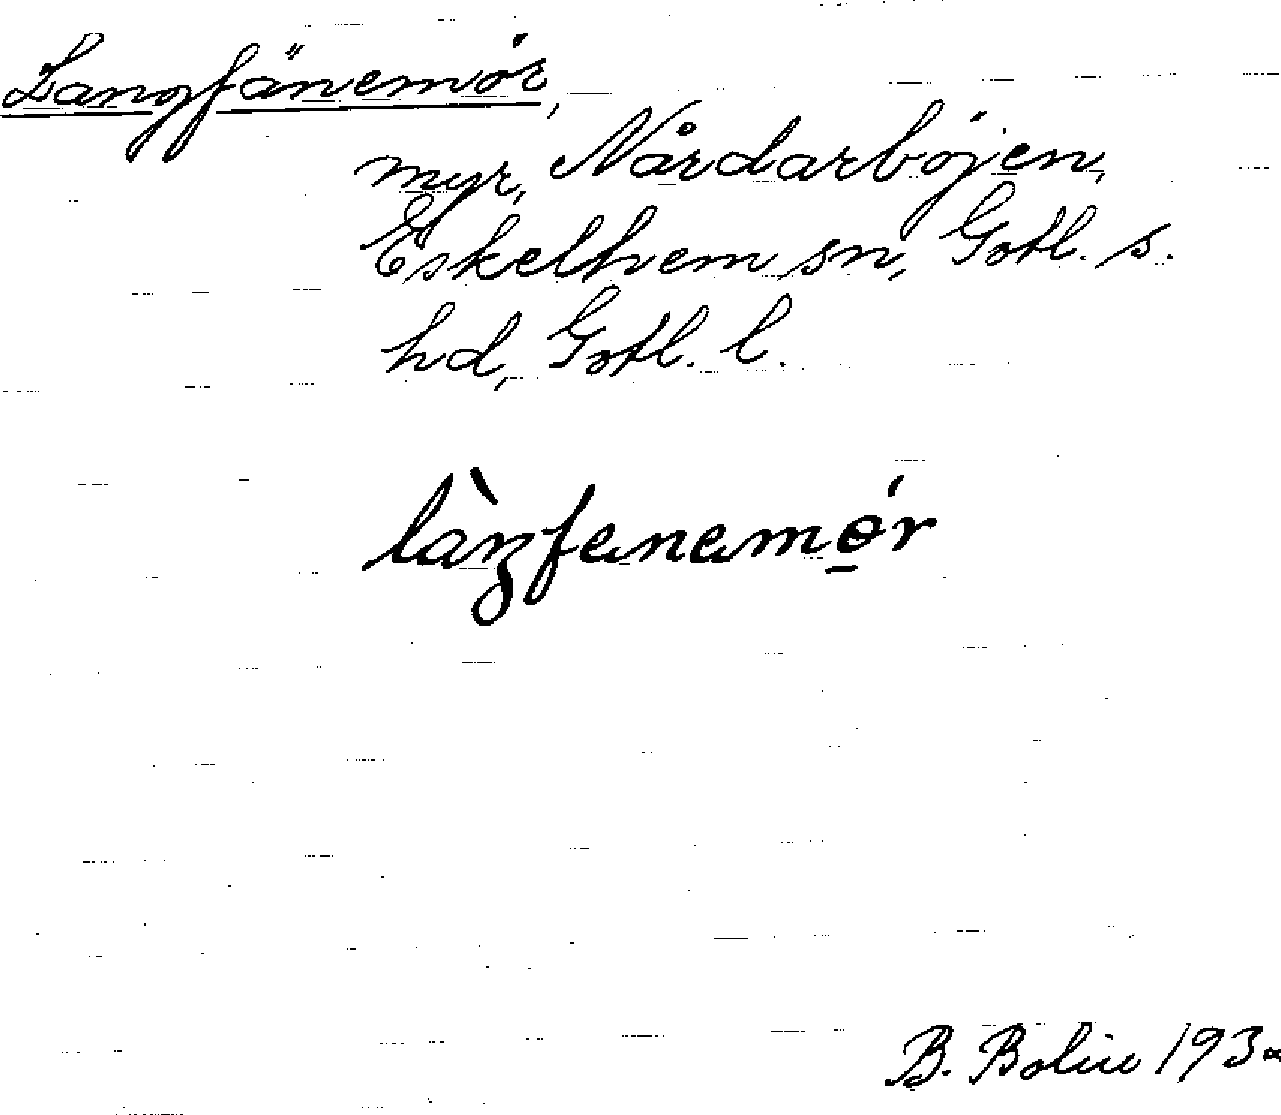 Langfänemör,
myr, Nårdarböjen,
Eskelhem sn, Gotl. s.
hd, Gotl. l.
B. Bolin 193